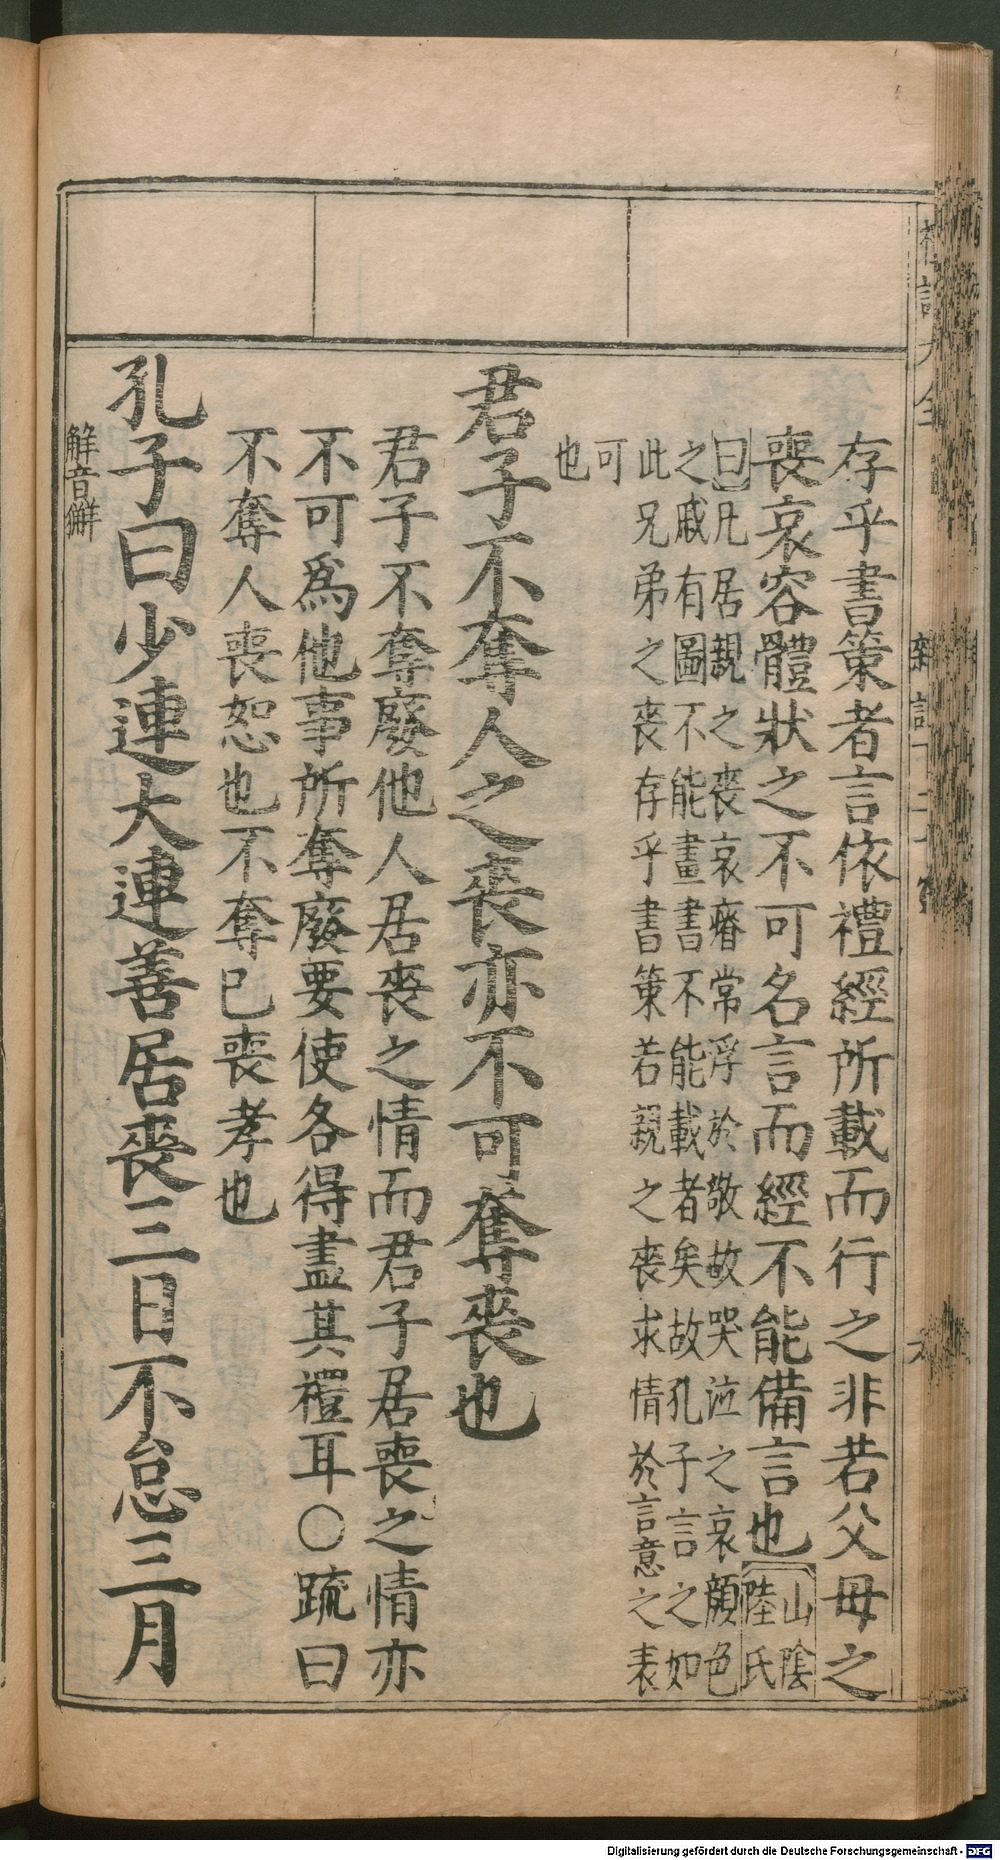 存乎書策者言依禮經所載而行之非若父母之
喪哀容體狀之不可名言而經不能備言也山陰
陸氏
曰凡居親之喪哀瘠常浮於敬故哭泣之哀顏色
之戚有圖不能畫書不能載者矣故孔子言之如
此兄弟之喪存乎書策若親之喪求情於言意之表
可
也
君子不奪人之喪亦不可奪喪也
君子不奪廢他人居喪之情而君子居喪之情亦
不可爲他事所奪廢要使各得盡其禮耳○疏曰
不奪人喪恕也不奪己喪孝也
孔子曰少連大連善居喪三日不怠三月
解音獬
Digitalisierung gefördert durch die Deutsche Forschungsgemeinschaft - DFG